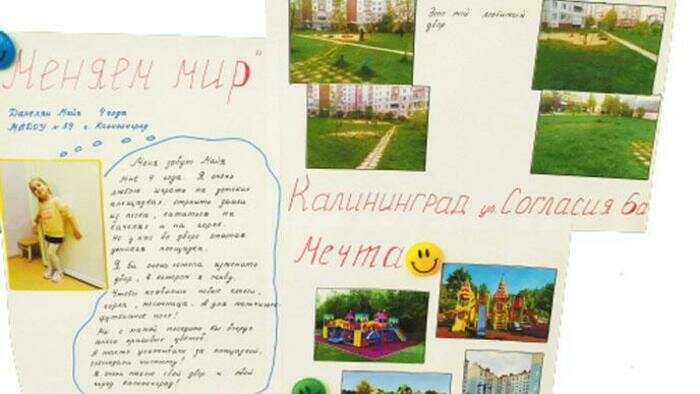 Меняем мир"
Далелян Майя 4 года
МАДОУ №59 г. Калининград
Меня зовут Майя
Мне 4 года. Я очень
люблю играть на детских
площадках, строить замки
из песка, кататься на
качелях и на горке.
Но у нас во дворе
детская площадка.
Я бы очень хотела изменить
двор, в котором я живу.
Чтобы появились новые качели,
горка, песочница. А для мальчишек
футбольное поле!
Мы с мамой посадили бы вокруг
много красивых цветов.
ухаживали за площадкой,
соблюдали чистоту!
Я очень люблю свой двор и свой
город Калининград!
Это мой любимый
двор
Калининград ул. Согласия 6а
Мечта